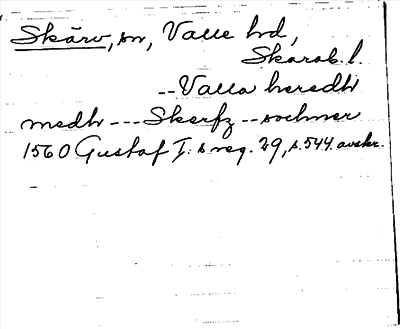 Skärv, sn, Valle hd,
Skarab. l.
-- Valla heredh
medh --- Skerfz -- sochner
1560 Gustaf I:s reg. 29, s. 544. avskr.